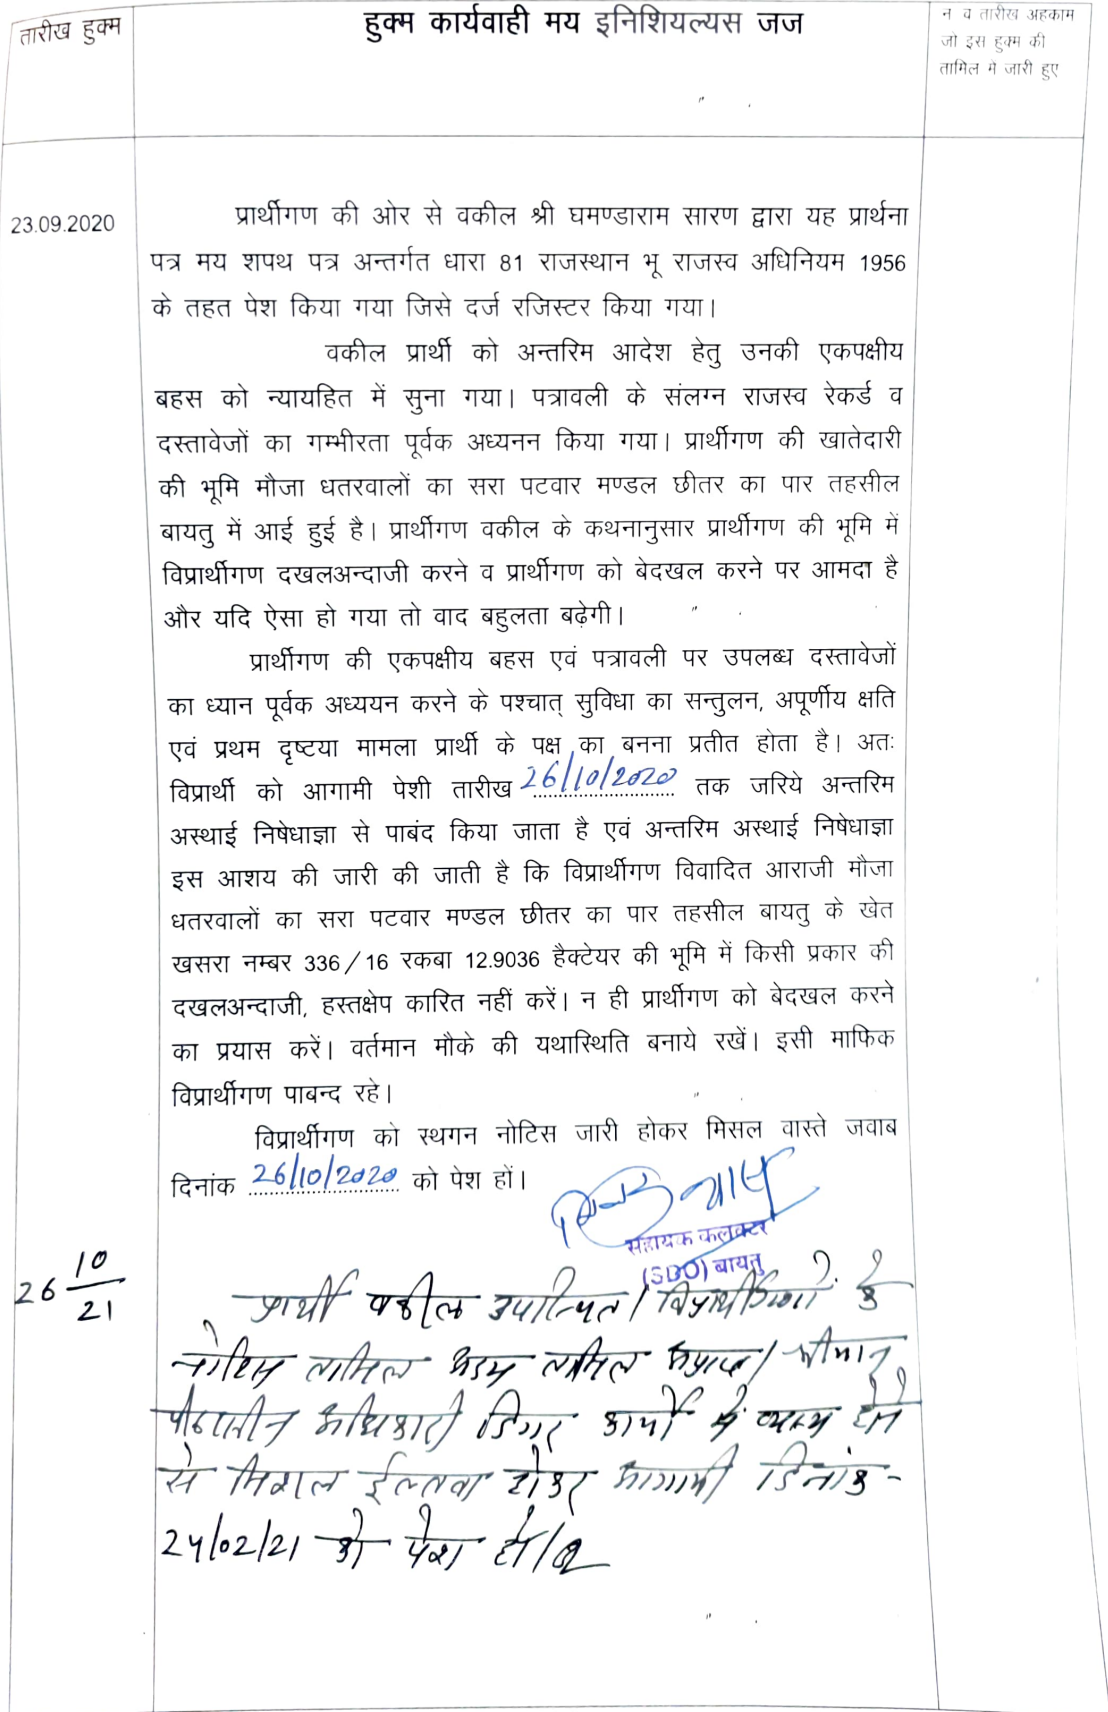 तारीख हुक्म
हुक्म कार्यवाही मय इनिशियल्यस जज
न व तारीख अहकाम
जो इस हुक्म की
तामिल मे जारी हुए
23.09.2020
प्रार्थीगण की ओर से वकील श्री घमण्डाराम सारण द्वारा यह प्रार्थना
पत्र मय शपथ पत्र अन्तर्गत धारा 81 राजस्थान भू राजस्व अधिनियम 1956
के तहत पेश किया गया जिसे दर्ज रजिस्टर किया गया।
वकील प्रार्थी को अन्तरिम आदेश हेतु उनकी एकपक्षीय
बहस को न्यायहित में सुना गया। पत्रावली के संलग्न राजस्व रेकर्ड व
दस्तावेजों का गम्भीरता पूर्वक अध्यनन किया गया। प्रार्थीगण की खातेदारी
की भूमि मौजा धतरवालों का सरा पटवार मण्डल छीतर का पार तहसील
बायतु में आई हुई है। प्रार्थीगण वकील के कथनानुसार प्रार्थीगण की भूमि में
विप्रार्थीगण दखलअन्दाजी करने व प्रार्थीगण को बेदखल करने पर आमदा है
और यदि ऐसा हो गया तो वाद बहुलता बढ़ेगी।
प्रार्थीगण की एकपक्षीय बहस एवं पत्रावली पर उपलब्ध दस्तावेजों
का ध्यान पूर्वक अध्ययन करने के पश्चात् सुविधा का सन्तुलन, अपूर्णीय क्षति
एवं प्रथम दृष्टया मामला प्रार्थी के पक्ष का बनना प्रतीत होता है। अतः
विप्रार्थी को आगामी पेशी तारीख 26/10/2020 तक जरिये अन्तरिम
अस्थाई निषेधाज्ञा से पाबंद किया जाता है एवं अन्तरिम अस्थाई निषेधाज्ञा
इस आशय की जारी की जाती है कि विप्रार्थीगण विवादित आराजी मौजा
धतरवालों का सरा पटवार मण्डल छीतर का पार तहसील बायतु के खेत
खसरा नम्बर 336/16 रकबा 12.9036 हैक्टेयर की भूमि में किसी प्रकार की
दखलअन्दाजी, हस्तक्षेप कारित नहीं करें। न ही प्रार्थीगण को बेदखल करने
का प्रयास करें। वर्तमान मौके की यथास्थिति बनाये रखें। इसी माफिक
विप्रार्थीगण पाबन्द रहे।
विप्रार्थीगण को स्थगन नोटिस जारी होकर मिसल वास्ते जवाब
दिनांक 26/10/2020 को पेश हों।
सहायक कलक्टर
(SDO) बायतु
26 10/21
प्रार्थी वकील उपस्थित। विप्रार्थीगणों के
नोटिस तामिल अदम तामिल अप्राप्त। श्रीमान्
पीठासीन अधिकारी डिगर कार्यो में व्यस्थ होने
से मिशल ईल्तवा होकर आगामी दिनांक -
24/02/21 को पेश हो।